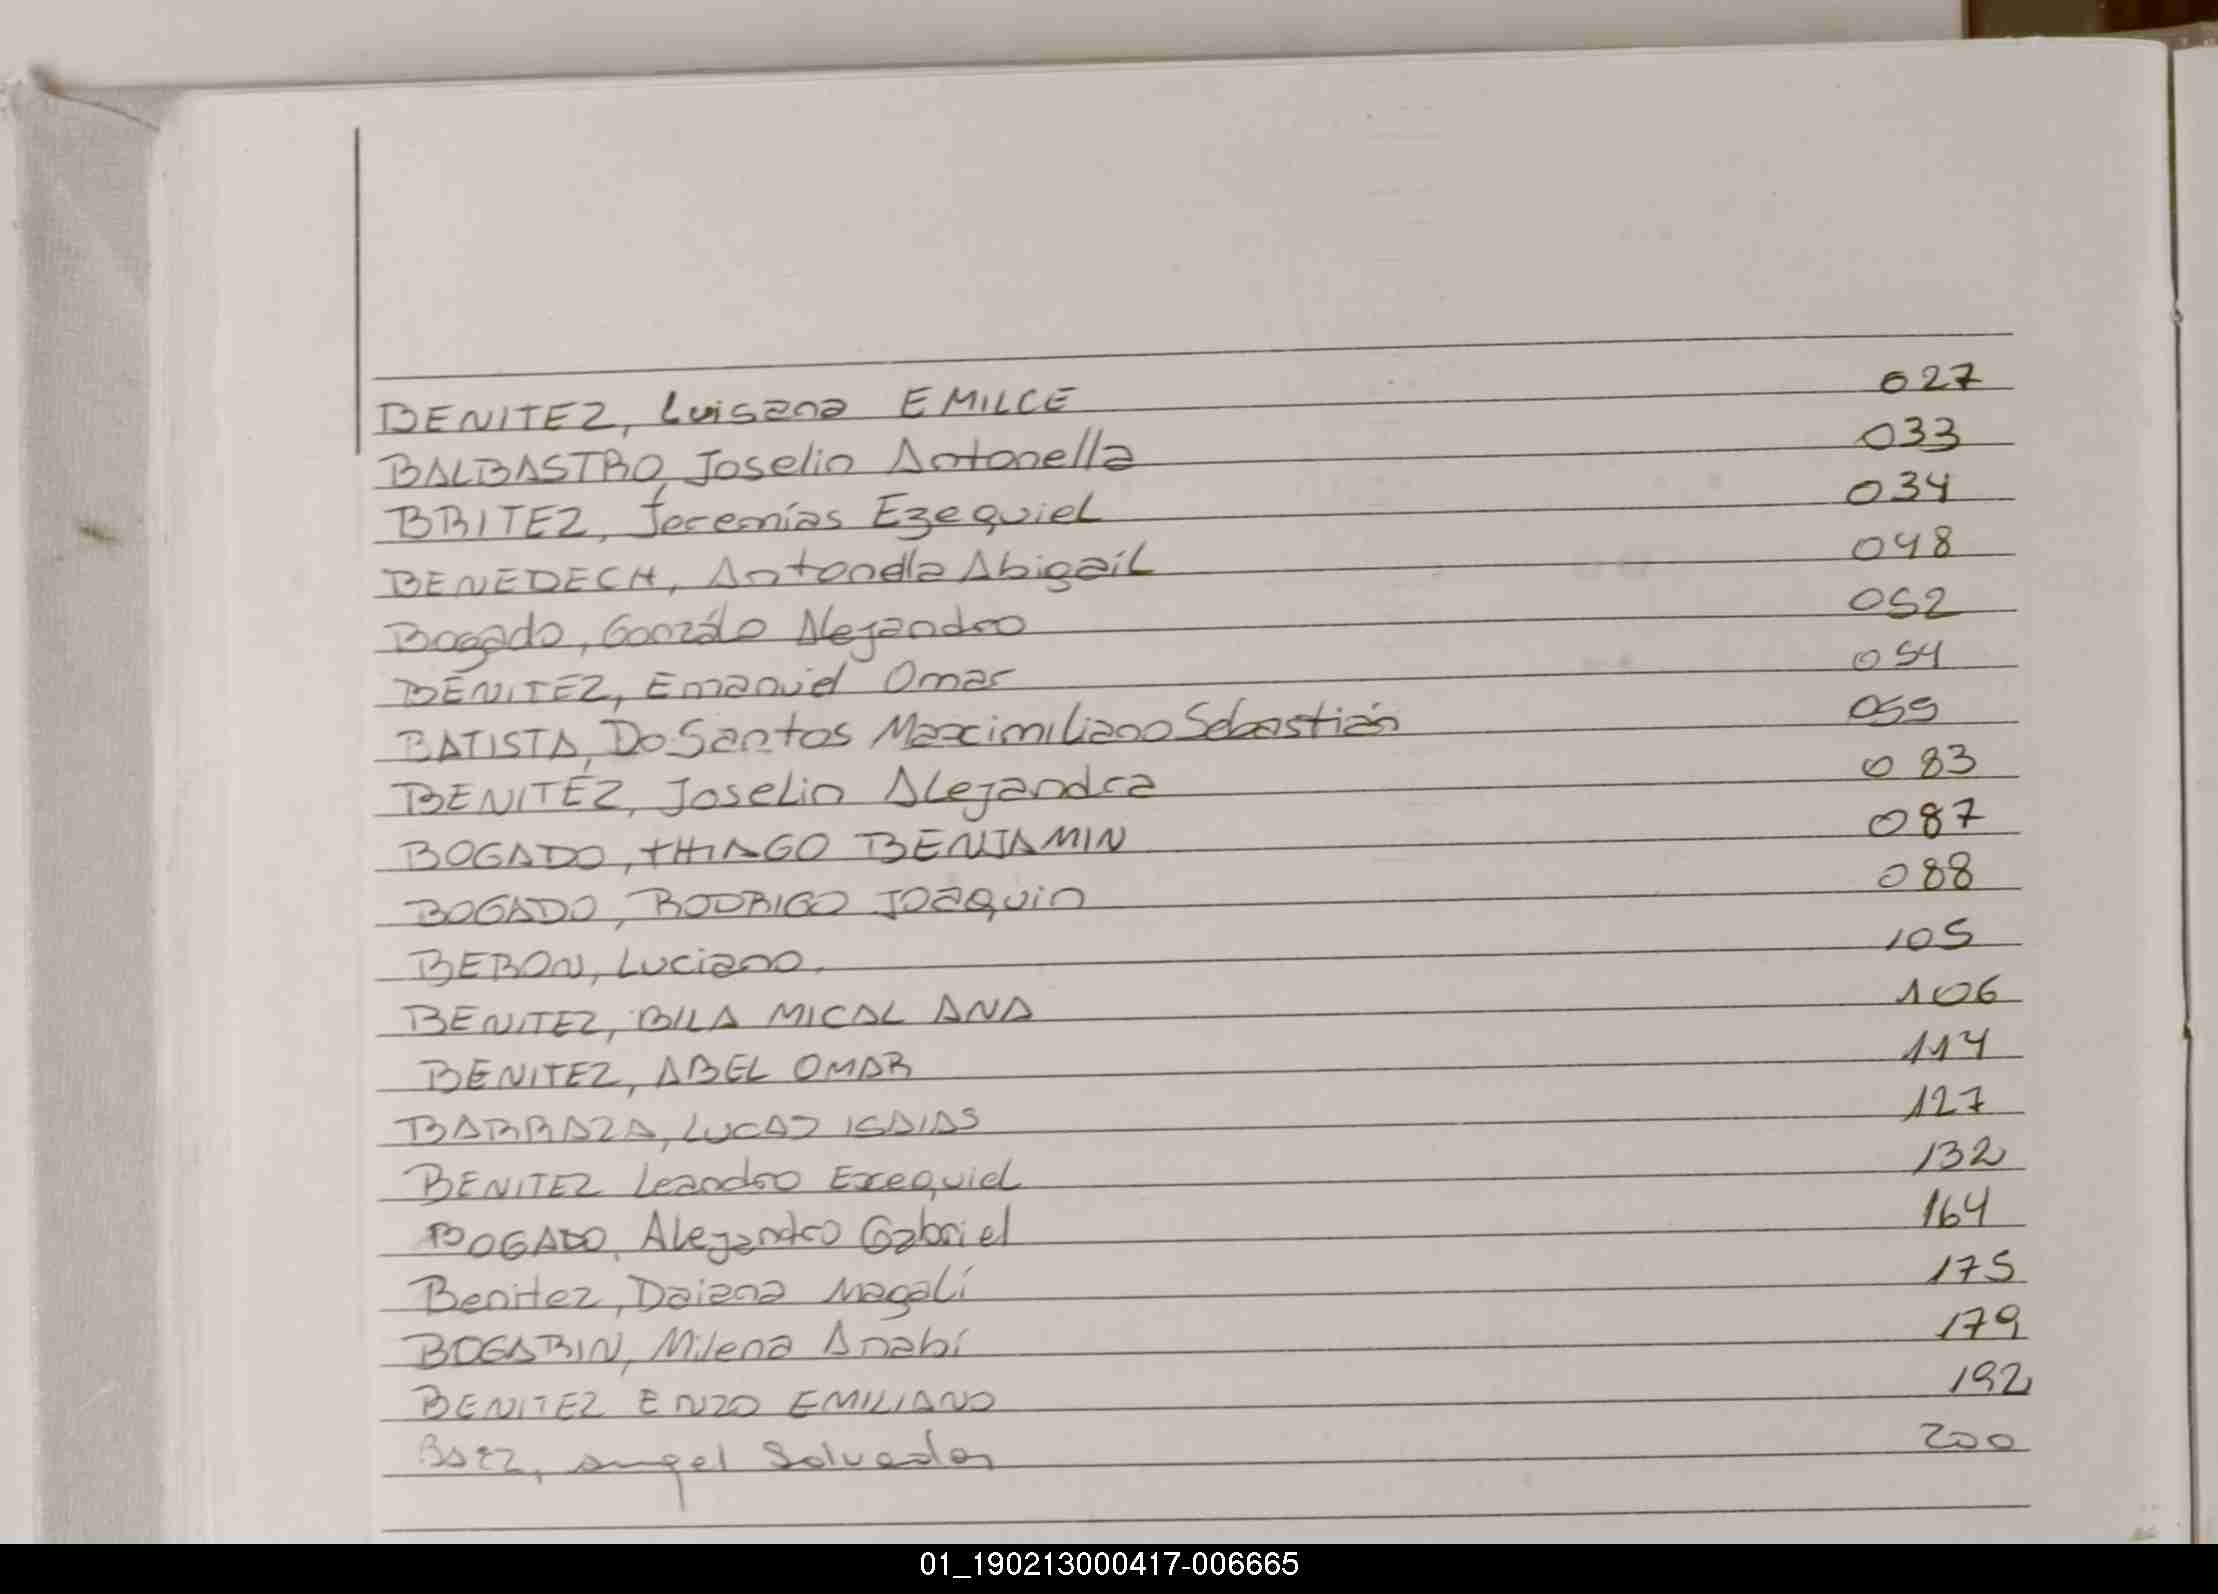 BENITEZ, Luisana EMILCE 027
BALBASTRO, Joselin Antonella 033
BRITEZ, Jeremías Ezequiel 034
BENEDECH, Antonella Abigail 048
Bogado, Gonzálo Alejandro 052
BENITEZ, Emanuel Omar 054
BATISTA, Do Santos Maximiliano Sebastián 055
BENITEZ, Joselin Alejandra 083
BOGADO, THIAGO BENJAMIN 087
BOGADO, RODRIGO JOAQUIN 088
BERON, Luciano. 105
BENITEZ, BILA MICAL ANA 106
BENITEZ, ABEL OMAR 114
BARRAZA, LUCAS ISAIAS 127
BENITEZ Leandro Exequiel 132
BOGADO, Alejandro Gabriel 164
Benitez, Daiana Magalí 175
BOGARIN, Milena Anabi 179
BENITEZ ENZO EMILIANO 192
Baez, Angel Salvador 200
01_190213000417-006665